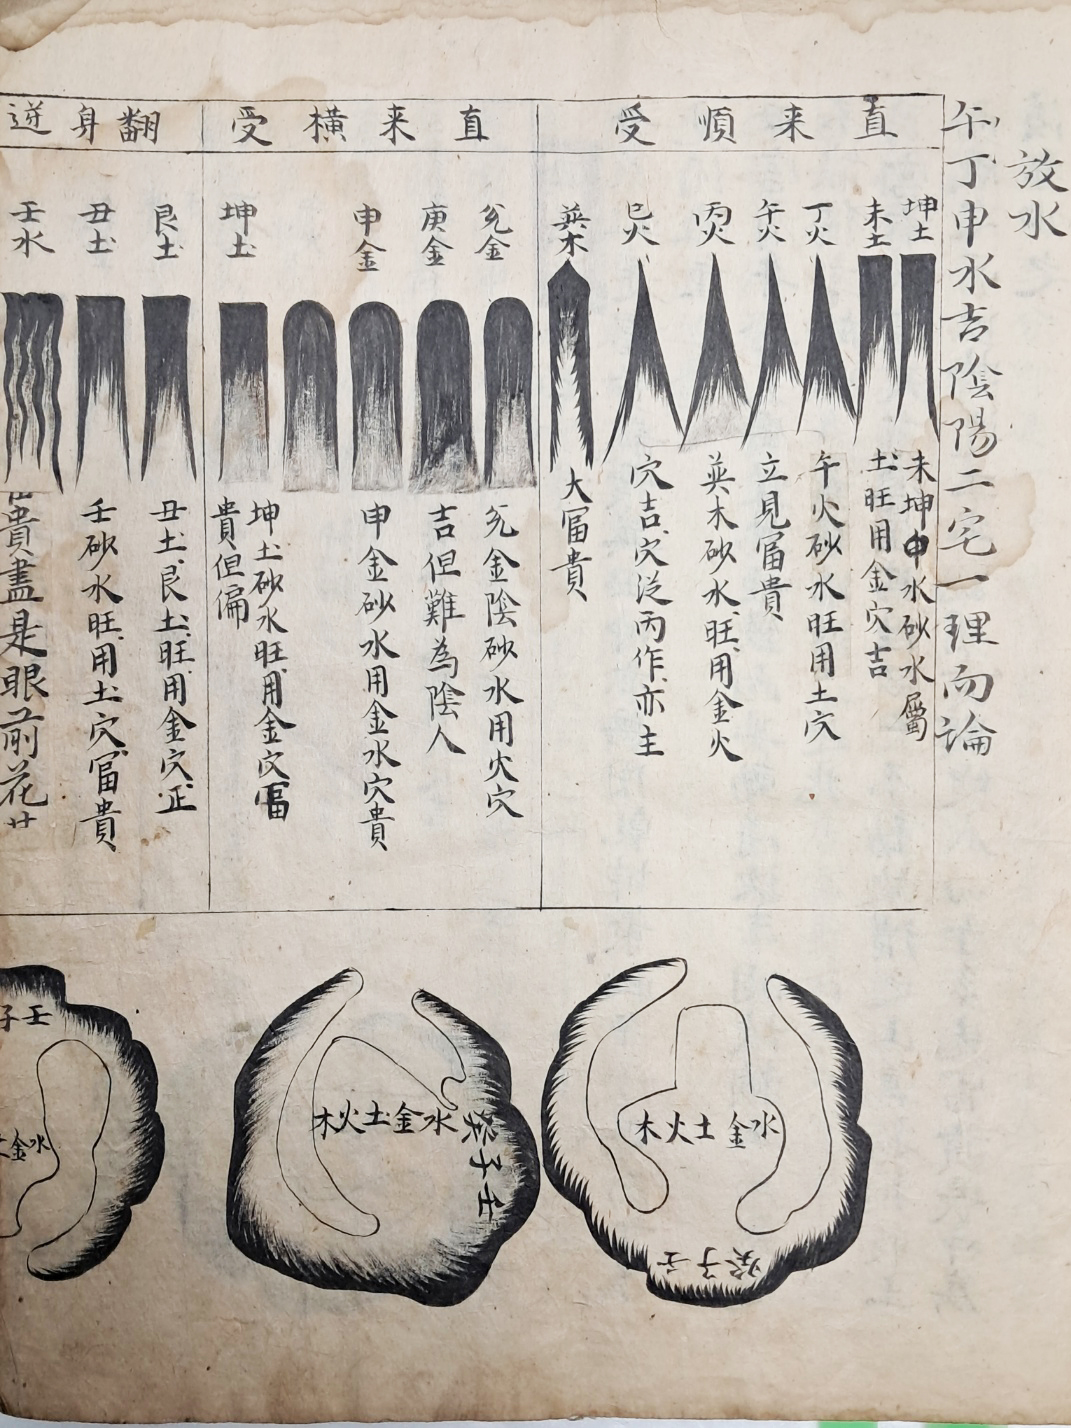 放水
午丁申水吉陰陽二宅一理而論
直来順受
坤土
未土
丁火
午火
丙火
巳火
巽木
未坤申水砂水屬
土旺用金穴吉
午火砂水旺用土穴
立見冨貴
巽木砂水旺用金火
穴吉穴迯丙作亦主
大冨貴
直来横受
兊金
庚金
申金
坤土
兊金陰砂水用火穴
吉但難為陰人
申金砂水用金水穴貴
坤土砂水旺用金穴冨
貴但偏
翻身逆
艮土
丑土
壬水
丑土艮土旺用金穴正
壬砂水旺用土穴冨貴
貴盡是眼前花
木火土金水
癸子壬
木火土金水
癸子壬
子壬
土金水